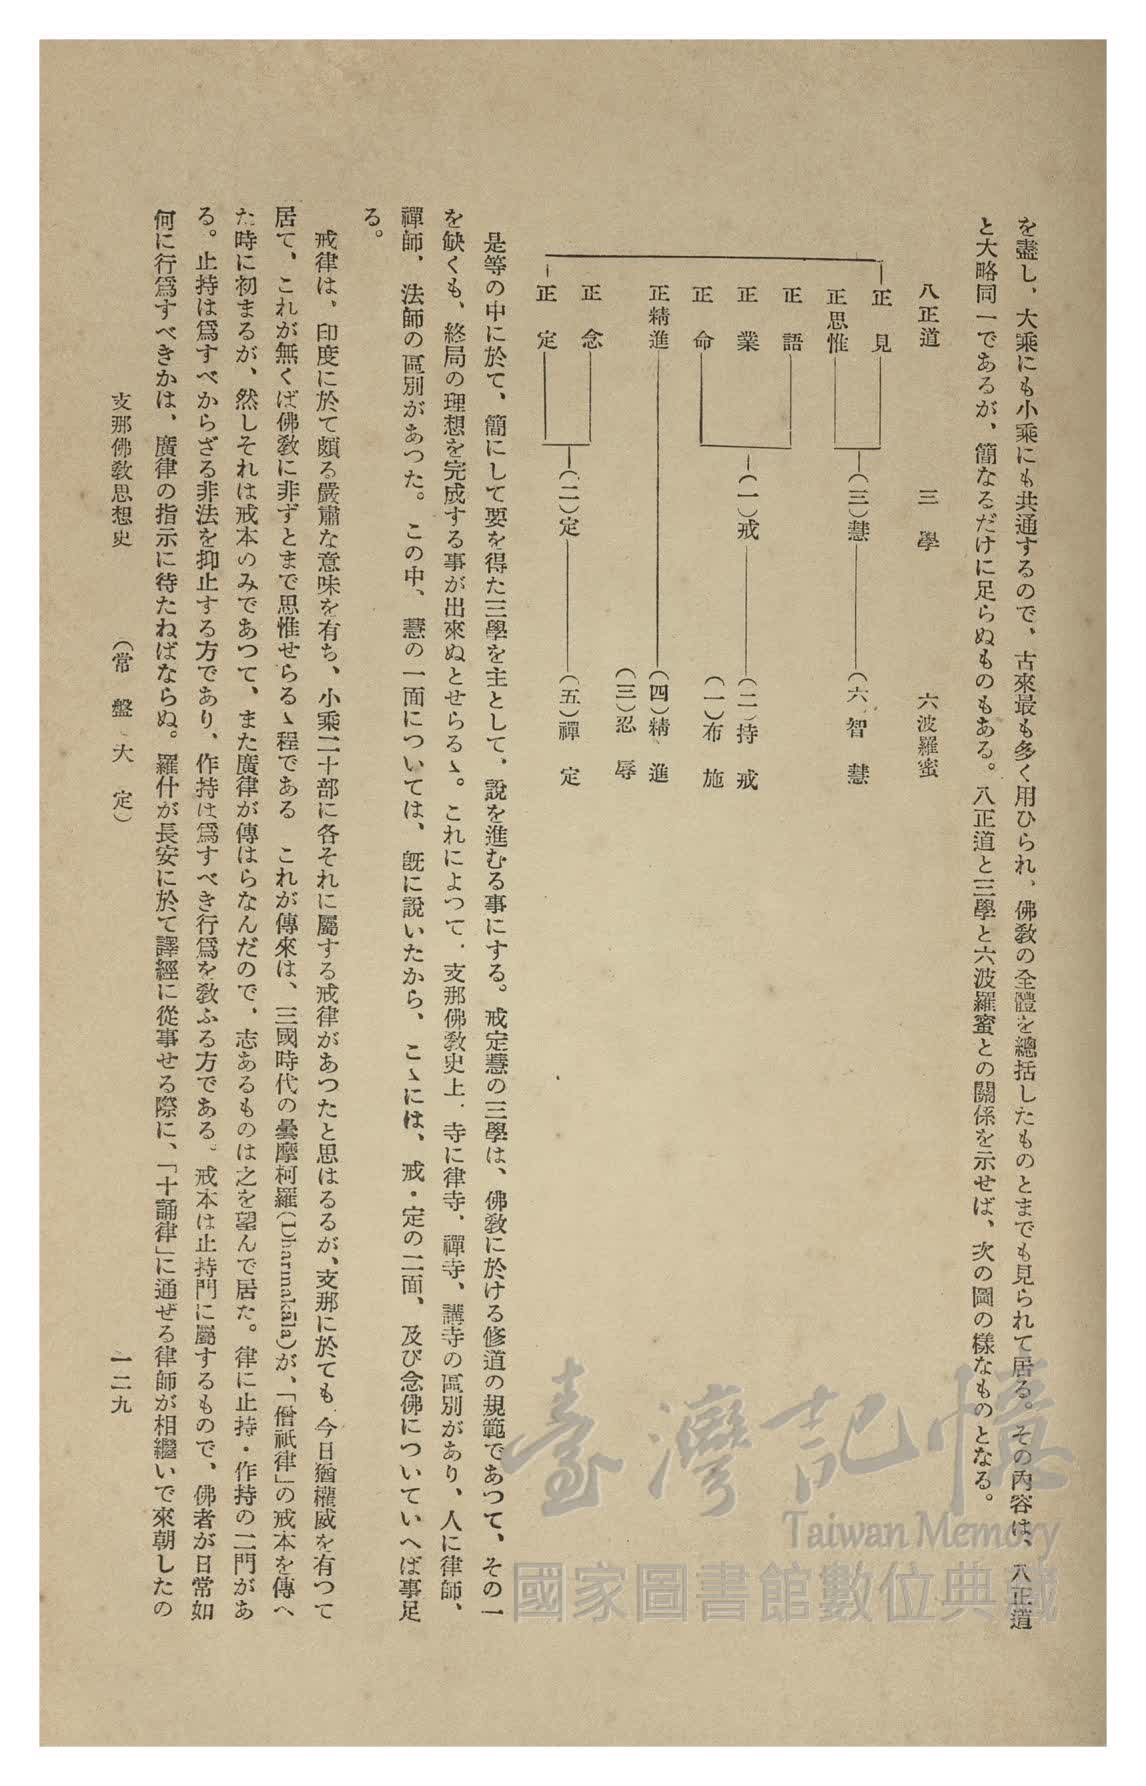 を盡し、大乘にも小乘にも共通するので、古來最も多く用ひられ、佛敎の全體を總括したものとまでも見られて居る。その內容は、八正道
と大略同一であるが、簡なるだけに足らぬものもある。八正道と三學と六波羅蜜との關係を示せば、次の圖の樣なものとなる。
八正道 三學 六波羅蜜
正見
正思惟
(三)慧 (六)智慧
正語
正業
正命
(一)戒 (二)持戒
(一)布施
正精進 (四)精進
(三)忍辱
正念
正定
(二)定 (五)禪定
是等の中に於て、簡にして要を得た三學を主として、說を進むる事にする。戒定慧の三學は、佛敎に於ける修道の規範であつて、その一
を缺くも、終局の理想を完成する事が出來ぬとせらるゝ。これによつて、支那佛敎史上、寺に律寺、禪寺、講寺の區別があり、人に律師、
禪師、法師の區別があつた。この中、慧の一面については、旣に說いたから、こゝには、戒・定の二面、及び念佛についていへば事足
る。
戒律は、印度に於て頗る嚴肅な意味を有ち、小乘二十部に各それに屬する戒律があつたと思はるるが、支那に於ても、今日猶權威を有つて
居て、これが無くば佛敎に非ずとまで思惟せらるゝ程である これが傳來は、三國時代の曇摩柯羅(Dharmakāla)が、「僧祇律」の戒本を傳へ
た時に初まるが、然しそれは戒本のみであつて、また廣律が傳はらなんだので、志あるものは之を望んで居た。律に止持・作持の二門があ
る。止持は爲すべからざる非法を抑止する方であり、作持は爲すべき行爲を敎ふる方である。戒本は止持門に屬するもので、佛者が日常如
何に行爲すべきかは、廣律の指示に待たねばならぬ。羅什が長安に於て譯經に從事せる際に、「十誦律」に通ぜる律師が相繼いで來朝したの
支那佛敎思想史 (常盤大定) 一二九
臺灣記憶
Taiwan Memory
國家圖書館數位典藏